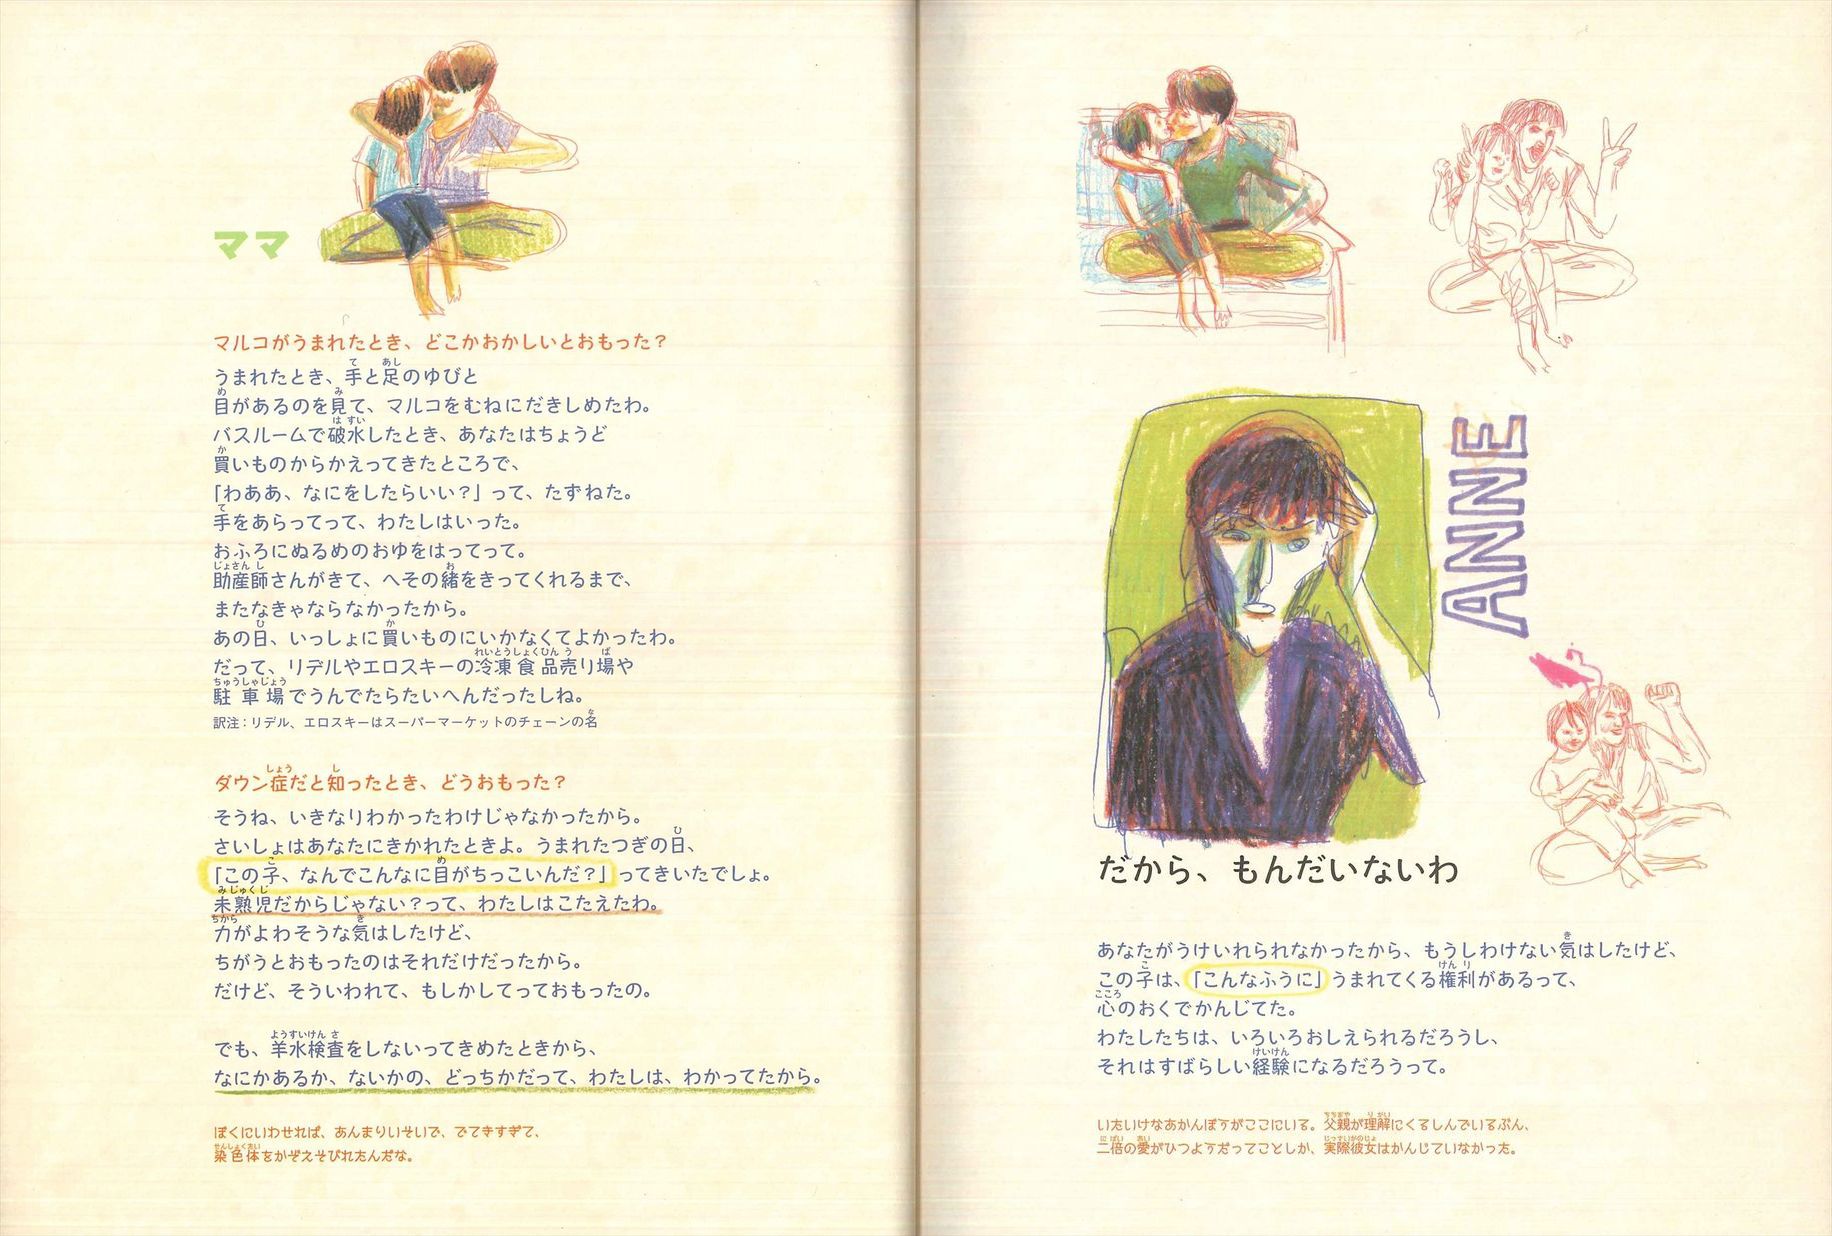 ママ
マルコがうまれたとき、どこかおかしいとおもった？
うまれたとき、手と足のゆびと
目があるのを見て、マルコをむねにだきしめたわ。
バスルームで破水したとき、あなたはちょうど
買いものからかえってきたところで、
「わああ、なにをしたらいい？」って、たずねた。
手をあらってって、わたしはいった。
おふろにぬるめのおゆをはってって。
助産師さんがきて、へその緒をきってくれるまで、
またなきゃならなかったから。
あの日、いっしょに買いものにいかなくてよかったわ。
だって、リデルやエロスキーの冷凍食品売り場や
駐車場でうんでたらたいへんだったしね。
訳注：リデル、エロスキーはスーパーマーケットのチェーンの名
ダウン症だと知ったとき、どうおもった？
そうね、いきなりわかったわけじゃなかったから。
さいしょはあなたにきかれたときよ。うまれたつぎの日、
「この子、なんでこんなに目がちっこいんだ？」ってきいたでしょ。
未熟児だからじゃない？って、わたしはこたえたわ。
力がよわそうな気はしたけど、
ちがうとおもったのはそれだけだったから。
だけど、そういわれて、もしかしてっておもったの。
でも、羊水検査をしないってきめたときから、
なにかあるか、ないかの、どっちかだって、わたしは、わかってたから。
ぼくにいわせれば、あんまりいそいで、でてきすぎて、
染色体をかぞえそびれたんだな。
ANNE
だから、もんだいないわ
あなたがうけいれられなかったから、もうしわけない気はしたけど、
この子は、「こんなふうに」うまれてくる権利があるって、
心のおくでかんじてた。
わたしたちは、いろいろおしえられるだろうし、
それはすばらしい経験になるだろうって。
いたいけなあかんぼうがここにいる。父親が理解にくるしんでいるぶん、
二倍の愛がひつようだってことしか、実際彼女はかんじていなかった。